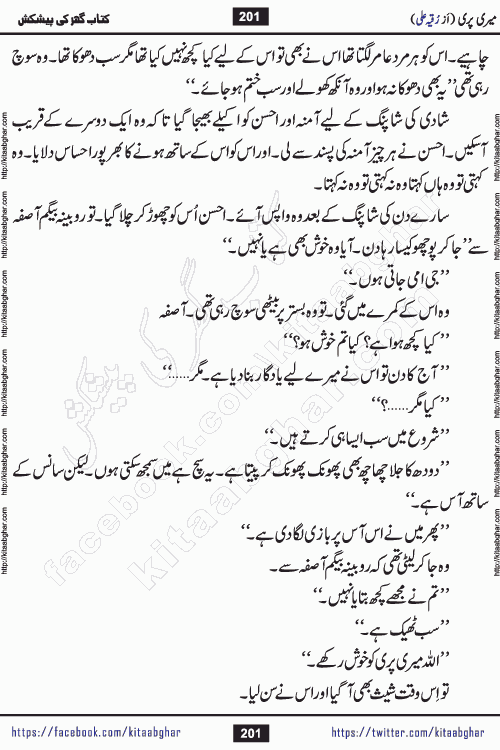 کتاب گھر کی پیشکش 201 میری پری (از رُقیہ علی)
چاہیے۔ اس کو ہر مرد عامر لگتا تھا اس نے بھی تو اس کے لیے کیا کچھ نہیں کیا تھا مگر سب دھوکا تھا۔ وہ سوچ
رہی تھی ’’یہ بھی دھوکا نہ ہو اور وہ آنکھ کھولے اور سب ختم ہو جائے۔‘‘
شادی کی شاپنگ کے لیے آمنہ اور احسن کو اکیلے بھیجا گیا تاکہ وہ ایک دوسرے کے قریب
آسکیں۔ احسن نے ہر چیز آمنہ کی پسند سے لی۔ اور اس کو اس کے ساتھ ہونے کا بھرپور احساس دلایا۔ وہ
کہتی تو وہ ہاں کہتا وہ نہ کہتی تو وہ نہ کہتا۔
سارے دن کی شاپنگ کے بعد وہ واپس آئے۔ احسن اُس کو چھوڑ کر چلا گیا۔ تو روبینہ بیگم آصفہ
سے’’ جا کر پوچھو کیسا رہا دن۔ آیا وہ خوش بھی ہے یا نہیں۔‘‘
’’جی امی جاتی ہوں۔‘‘
وہ اس کے کمرے میں گئی۔ تو وہ بستر پر بیٹھی سوچ رہی تھی۔ آصفہ
’’کیا کچھ ہوا ہے؟ کیا تم خوش ہو؟‘‘
’’آج کا دن تو اس نے میرے لیے یادگار بنا دیا ہے۔ مگر......‘‘
’’کیا مگر......؟‘‘
’’شروع میں سب ایسا ہی کرتے ہیں۔‘‘
’’دودھ کا جلا چھاچھ بھی پھونک پھونک کر پیتا ہے۔ یہ سچ ہے میں سمجھ سکتی ہوں۔ لیکن سانس کے
ساتھ آس ہے۔‘‘
’’پھر میں نے اس آس پر بازی لگا دی ہے۔‘‘
وہ جا کر لیٹی تھی کہ روبینہ بیگم آصفہ سے۔
’’تم نے مجھے کچھ بتایا نہیں۔‘‘
’’سب ٹھیک ہے۔‘‘
’’اللہ میری پری کو خوش رکھے۔‘‘
تو اِس وقت شیث بھی آ گیا اور اس نے سن لیا۔
https://facebook.com/kitaabghar 201 https://twitter.com/kitaabghar
http://kitaabghar.com http://kitaabghar.com http://kitaabghar.com http://kitaabghar.com http://kitaabghar.com http://kitaabghar.com
http://kitaabghar.com http://kitaabghar.com http://kitaabghar.com http://kitaabghar.com http://kitaabghar.com http://kitaabghar.com
کتاب گھر کی پیشکش
kitaabghar.com
facebook.com/kitaabghar